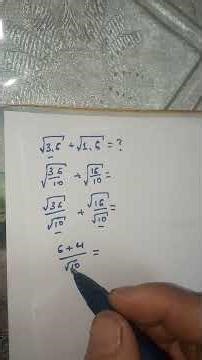 √3,6 + √1,6 = ?
√36/10 + √16/10 =
√36/√10 + √16/√10 =
6+4/√10 =